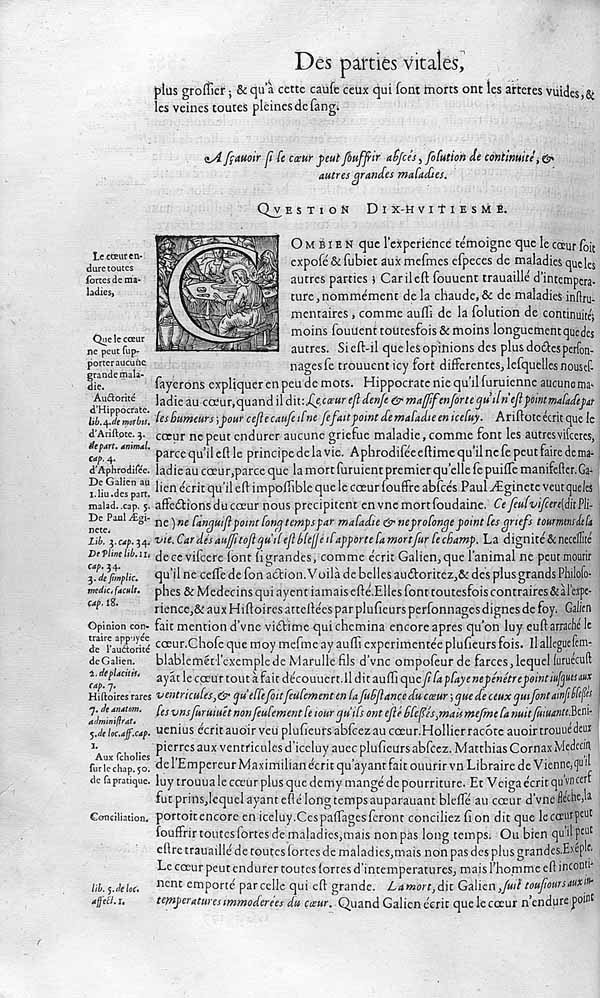 Des parties vitales,
plus grossier; & qu'à cette cause ceux qui sont morts ont les arteres vuides, &
les veines toutes pleines de sang.
A sçauoir si le cœur peut souffrir abscés, solution de continuité, &
autres grandes maladies.
QVESTION DIX-HVITIESME.
Le cœur en-
dure toutes
sortes de ma-
ladies,
Que le cœur
ne peut sup-
porter aucune
grande mala-
die.
Auctorité
d'Hippocrate.
lib. 4. de morbis.
d'Aristote. 3.
de part. animal.
cap. 4.
d'Aphrodisée.
De Galien au
1. liu. des part.
malad. cap. 5.
De Paul Ægi-
nete.
Lib. 3. cap. 34.
De Pline lib. 11.
cap. 34.
3. de simplic.
medic. facult.
cap. 18.
Opinion con-
traire appuyée
de l'auctorité
de Galien.
2. de placitis.
cap. 7.
Histoires rares
7. de anatom.
administrat.
5. de loc. aff. cap.
1.
Aux scholies
sur le chap. 50.
de sa pratique.
Conciliation.
lib. 5. de loc.
affect. 1.
COMBIEN que l'experience témoigne que le cœur soit
exposé & subiet aux mesmes especes de maladies que les
autres parties; Car il est souuent trauaillé d'intempera-
ture, nommément de la chaude, & de maladies instru-
mentaires, comme aussi de la solution de continuité,
moins souuent toutesfois & moins longuement que des
autres. Si est-il que les opinions des plus doctes person-
nages se trouuent icy fort differentes, lesquelles nous es-
sayerons expliquer en peu de mots. Hippocrate nie qu'il suruienne aucune ma-
ladie au cœur, quand il dit: Le cœur est dense & massif en sorte qu'il n'est point malade par
les humeurs; pour ceste cause il ne se fait point de maladie en iceluy. Aristote écrit que le
cœur ne peut endurer aucune griefue maladie, comme font les autres visceres,
parce qu'il est le principe de la vie. Aphrodisée estime qu'il ne se peut faire de ma-
ladie au cœur, parce que la mort suruient premier qu'elle se puisse manifester. Ga-
lien écrit qu'il est impossible que le cœur souffre abscés Paul Æginete veut que les
affections du cœur nous precipitent en vne mort soudaine. Ce seul viscere (dit Pli-
ne) ne languist point long temps par maladie & ne prolonge point les griefs tourmens de la
vie. Car dés aussi tost qu'il est blessé il apporte la mort sur le champ. La dignité & necessité
de ce viscere sont si grandes, comme écrit Galien, que l'animal ne peut mourir
qu'il ne cesse de son action. Voilà de belles auctoritez, & des plus grands Philoso-
phes & Medecins qui ayent iamais esté. Elles sont toutesfois contraires & à l'expe-
rience, & aux Histoires attestées par plusieurs personnages dignes de foy. Galien
fait mention d'vne victime qui chemina encore apres qu'on luy eust arraché le
cœur. Chose que moy mesme ay aussi experimentée plusieurs fois. Il allegue sem-
blablemẽt l'exemple de Marulle fils d'vnc omposeur de farces, lequel suruécust
ayãt le cœur tout à fait découuert. Il dit aussi que si la playe ne pénétre point iusques aux
ventricules, & qu'elle soit seulement en la substance du cœur; que de ceux qui sont ainsi blessés
les vns suruiuẽt non seulement le iour qu'ils ont esté blessés, mais mesme la nuit suiuante. Beni-
uenius écrit auoir veu plusieurs abscez au cœur. Hollier racõte auoir trouué deux
pierres aux ventricules d'iceluy auec plusieurs abscez. Matthias Cornax Medecin
de l'Empereur Maximilian écrit qu'ayant fait ouurir vn Libraire de Vienne, qu'il
luy trouua le cœur plus que demy mangé de pourriture. Et Veiga écrit qu'vn cerf
fut prins, lequel ayant esté long temps auparauant blessé au cœur d'vne fléche, la
portoit encore en iceluy. Ces passages seront conciliez si on dit que le cœur peut
souffrir toutes sortes de maladies, mais non pas long temps. Ou bien qu'il peut
estre trauaillé de toutes sortes de maladies, mais non pas des plus grandes. Exẽple.
Le cœur peut endurer toutes sortes d'intemperatures, mais l'homme est inconti-
nent emporté par celle qui est grande. La mort, dit Galien, suit tousiours aux in-
temperatures immoderées du cœur. Quand Galien écrit que le cœur n'endure point